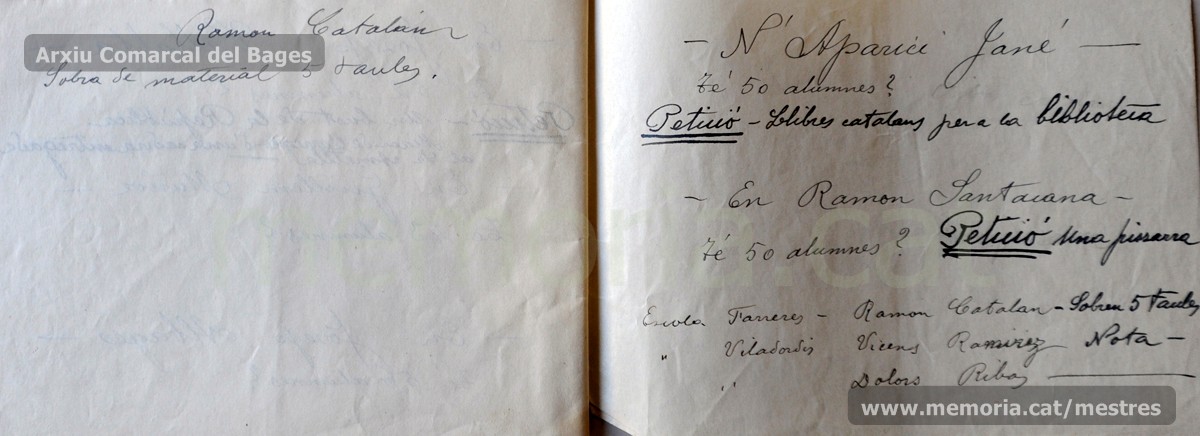 Ramon Catalán
Arxiu Comarcal del Bages
Sobra de material 5 taules.
— N'Aparici Jané —
Té 50 alumnes?
Petició - Llibres catalans per a la biblioteca
— En Ramon Santacana —
Té 50 alumnes? Petició una pissarra
Escola Farreres - Ramon Catalan - Sobren 5 taules
" Viladordis Vicens Ramírez Nota —
" Dolors Ribas —
memoria.cat
www.memoria.cat/mestres